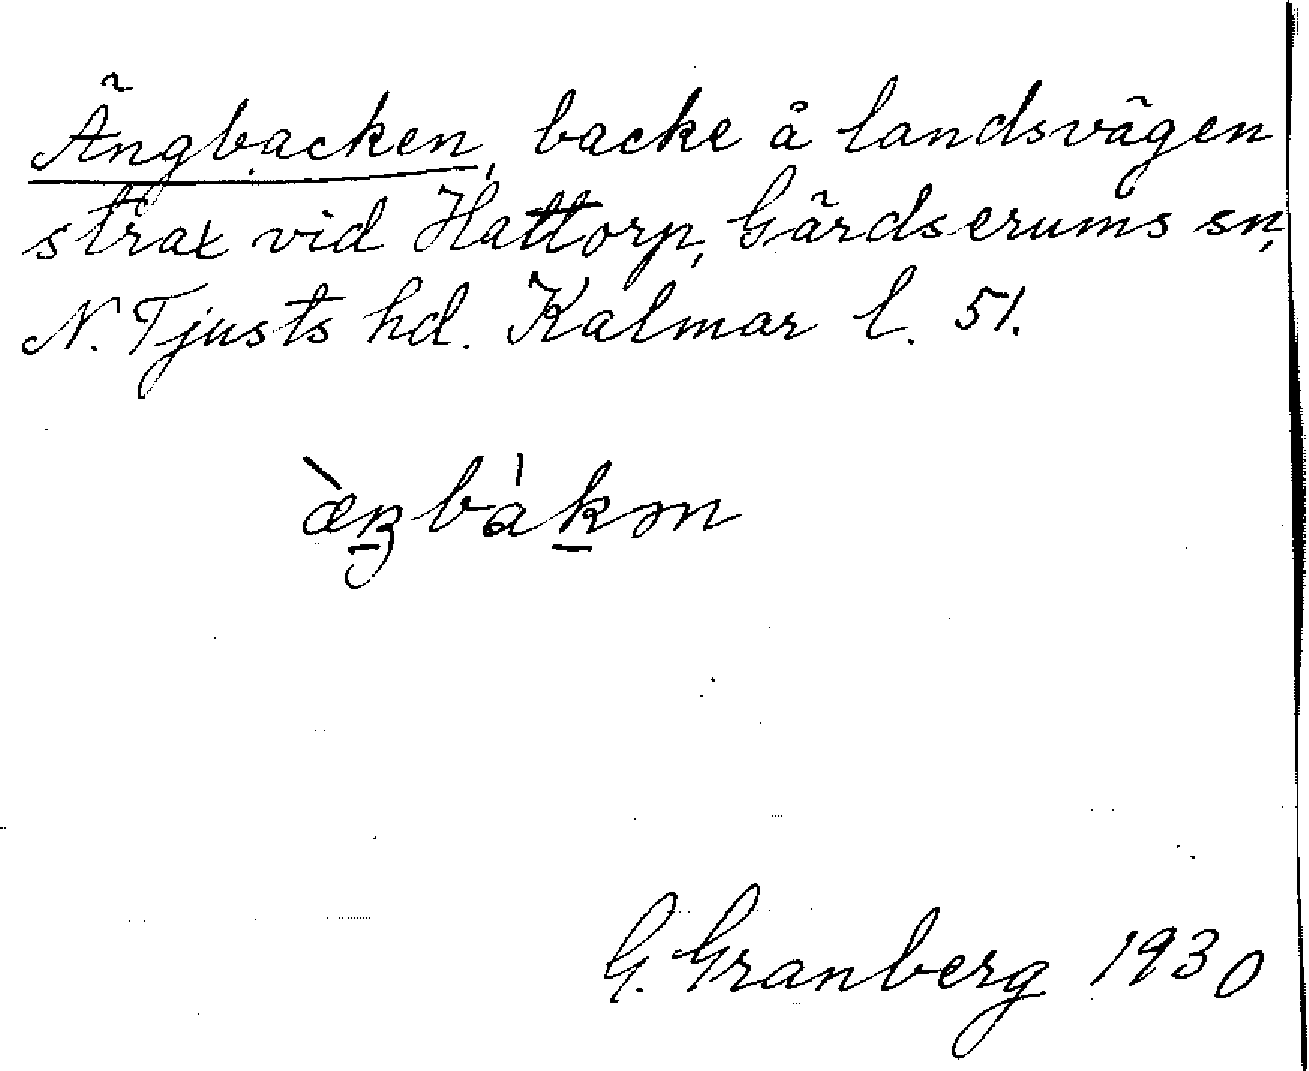 Ängbacken, backe å landsvägen
strax vid Hattorp, Gärdserums sn,
N. Tjusts hd. Kalmar l. 51.
æ̀ŋbàkən
G. Granberg 1930